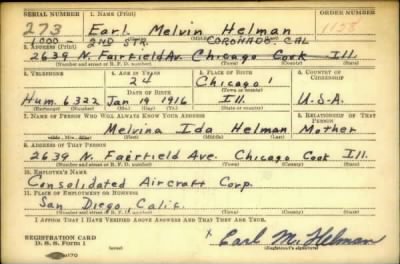 SERIAL NUMBER 1. NAME (Print) ORDER NUMBER
273 Earl Melvin Helman 1158
1000 - 2ND STR. CORONADO, CAL
2. ADDRESS (Print)
2639 N. Fairfield Av. Chicago Cook Ill.
(Number and street or R. F. D. number) (Town) (County) (State)
3. TELEPHONE 4. AGE IN YEARS 5. PLACE OF BIRTH 6. COUNTRY OF CITIZENSHIP
24 Chicago
DATE OF BIRTH (Town or county)
Hum. 6322 Jan 19 1916 Ill. U.S.A.
(Mo.) (Day) (Yr.) (State or country)
7. NAME OF PERSON WHO WILL ALWAYS KNOW YOUR ADDRESS 8. RELATIONSHIP OF THAT PERSON
Melvina Ida Helman Mother
(Mr., Mrs., Miss) (First) (Middle) (Last)
9. ADDRESS OF THAT PERSON
2639 N. Fairfield Ave. Chicago Cook Ill.
(Number and street or R. F. D. number) (Town) (County) (State)
10. EMPLOYER'S NAME
Consolidated Aircraft Corp.
11. PLACE OF EMPLOYMENT OR BUSINESS
San Diego, Calif.
(Number and street or R. F. D. number) (Town) (County) (State)
I AFFIRM THAT I HAVE VERIFIED ABOVE ANSWERS AND THAT THEY ARE TRUE.
REGISTRATION CARD
D. S. S. Form 1
x Earl M. Helman
(Registrant's signature)